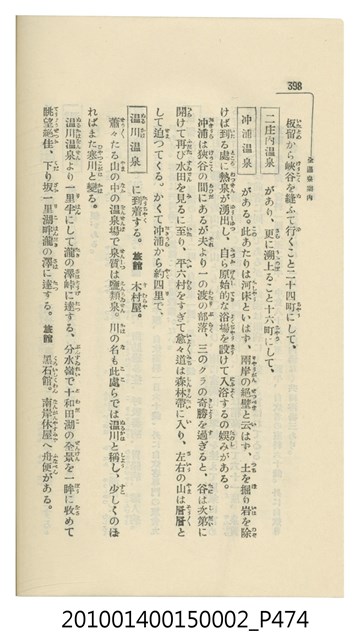 398
全温泉案内
板留から峡谷を縫ふて行くこと二十四町にして、
二庄内温泉
があり、更に溯上ること十六町にして、
沖浦温泉
がある。此あたりは河床といはず、兩岸の絶壁と云はず、土を掘り岩を除
けば到る處に熱が湧出し、自ら原始的な浴場を設けて入浴するの娯みがある。
沖浦は狹谷の間にあるが夫より一の渡の部落、三のクラの奇勝を過ぎると、谷は次第に
開けて再び水田を見るに至り、平六村をすぎて愈々道は森林帶に入り、左右の山は層層と
して迫つてくる。かくて沖浦から約四里で、
温川温泉
に到着する。旅館 木村屋。
蕭々たる山の中の温泉場で泉質は鹽類泉。川の名も此處らでは温川と稱し、少しくのぼ
ればまた寒川と變る。
温川温泉より一里半にして瀧の澤峠に達する、分水嶺で十和田湖の全景を一眸に收めて
眺望絶佳、下り坂一里湖畔瀧の澤に達する。旅館 黑石館。南岸休屋へ舟便がある。
201001400150002_P474